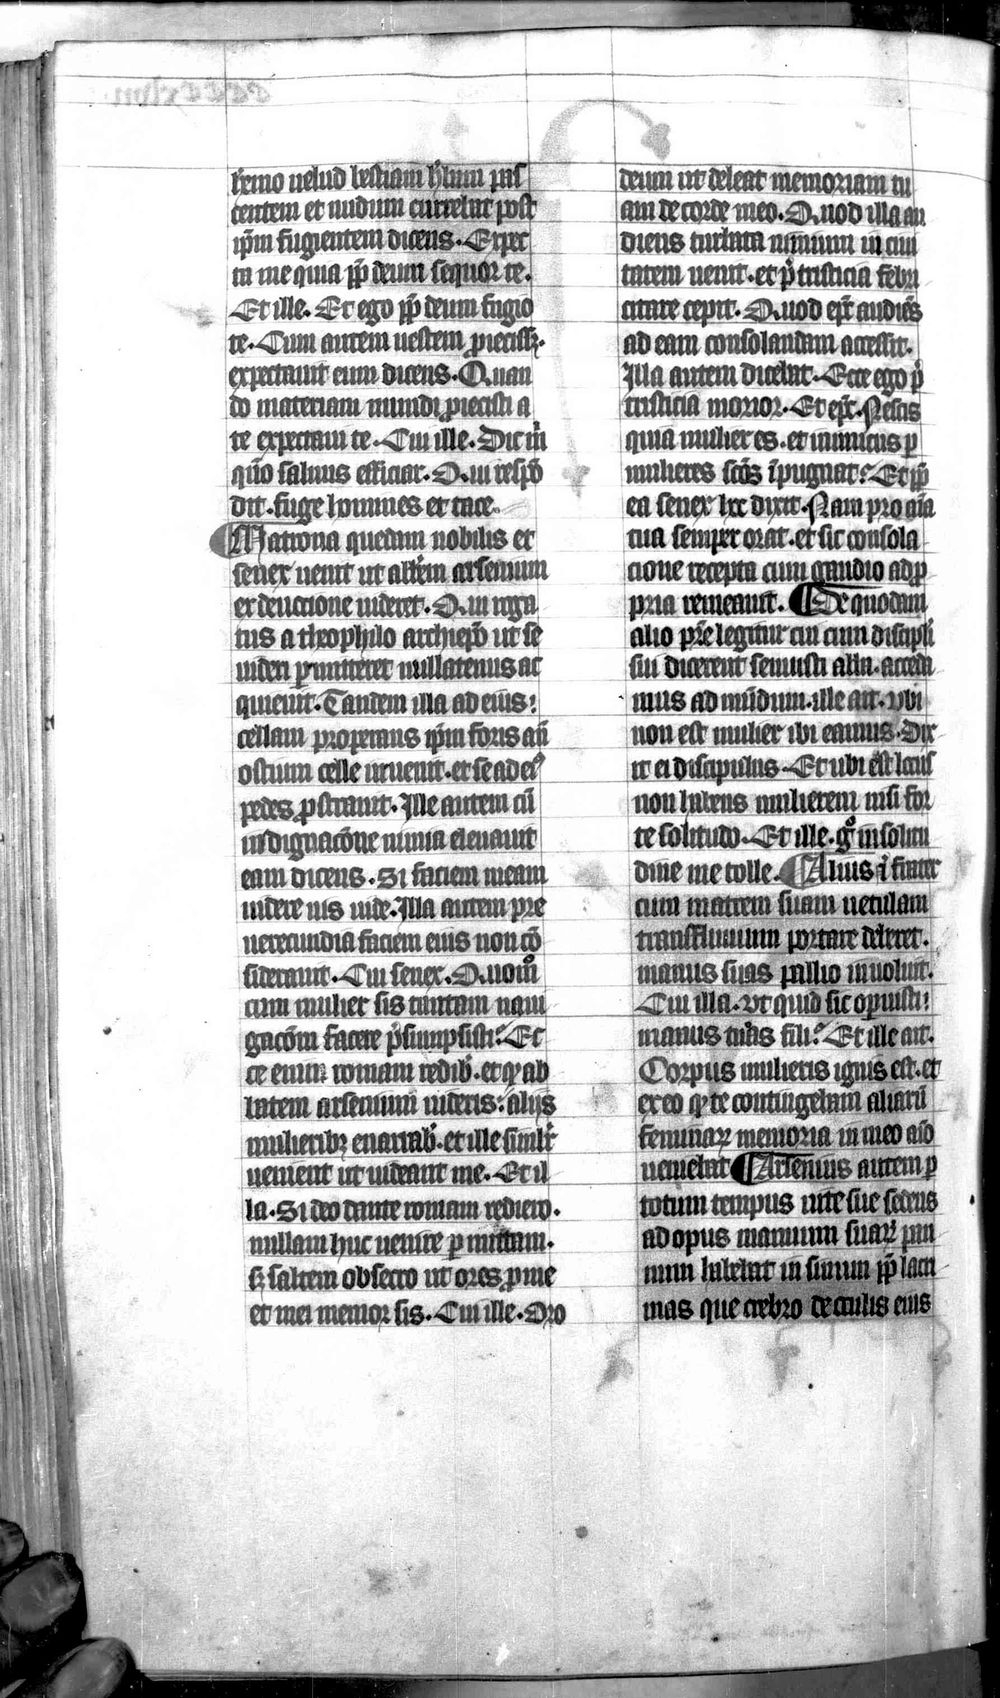 h̓emo uelud bestiam h̓bam pas
centem et nudum curreb̄at post
ip̄m fugientem dicens. Expec
ta me quia pp̄ deum sequor te.
Et ille. Et ego pp̄ deum fugio
te. Cum autem uestem ꝓiecissꝫ.
expectauit eum dicens. Quan
do materiam mundi ꝓiecisti a
te expectaui te. Cui ille. Dic m̓
quō saluus efficiar. Qui respō
dit. fuge homines et tace.
Matrona quedam nobilis et
senex uenit ut abb̄em arsenium
ex deuocione uideret. Qui roga
tus a theophilo archiep̄o ut se
uideri ꝑmitteret nullatenus ac
quieuit. Tandem illa ad eius:
cellam properans ip̄m foris an̄
ostium celle inuenit. et se ad ei9
pedes ꝓstrauit. Ille autem cū
indignacōne nimia eleuauit
eam dicens. Si faciem meam
uidere uis uide. Illa autem pre
uerecundia faciem eius non cō
siderauit. Cui senex. Quom̊
cum mulier sis tantam naui
gacōm facere p̄sumpsisti? Ec
ce enim romam redib̓. et qꝫ ab
batem arsenium uideris: alijs
mulieribꝫ enarrab̓. et ille simil̓r
uenient ut uideant me. Et il
la. Si deo dante romam rediero.
nullam huc uenire ꝑmittam.
sꝫ saltem obsecro ut ores ꝓ me
et mei memor sis. Cui ille. Oro
deum ut deleat memoriam tu
am de corde meo. Quod illa au
diens turbata nimium in ciui
tatem uenit. et p̄ tristicia febri
citare cepit. Quod ep̄c audiēs
ad eam consolandam accessit.
Illa autem dicebat. Ecce ego p̄
tristicia morior. Et ep̄c. Nescis
quia mulier es. et inimicus ꝑ
mulieres scōs īpugnat? Et pp̄
ea senex hec dixit. Nam pro aīa
tua semper orat. et sic consola
cione recepta cum gaudio ad ꝓ
pria remeauit. De quodam
alio pr̄e legitur cui cum discipl̓i
sui dicerent senuisti abba. acceda
mus ad mūdum. ille ait. vbi
non est mulier ibi eamus. Dix
it ei discipulus. Et ubi est locus
non habens mulierem nisi for
te solitudo. Et ille. g̊ in solitu
dine me tolle. Alius ī frater
cum matrem suam uetulam
trans fluuium portare deberet.
manus suas pallio inuoluit.
Cui illa. vt quid sic operuisti:
manus tuas fili? Et ille ait.
Corpus mulieris ignis est. et
ex eo qꝫ te contingebam aliarū
feminaꝝ memoria in meo aīo
ueniebat Arsenius autem ꝑ
totum tempus uite sue sedens
ad opus manuum suaꝝ pan
num habebat in sinum pp̄ lacri
mas que crebro de oculis eius